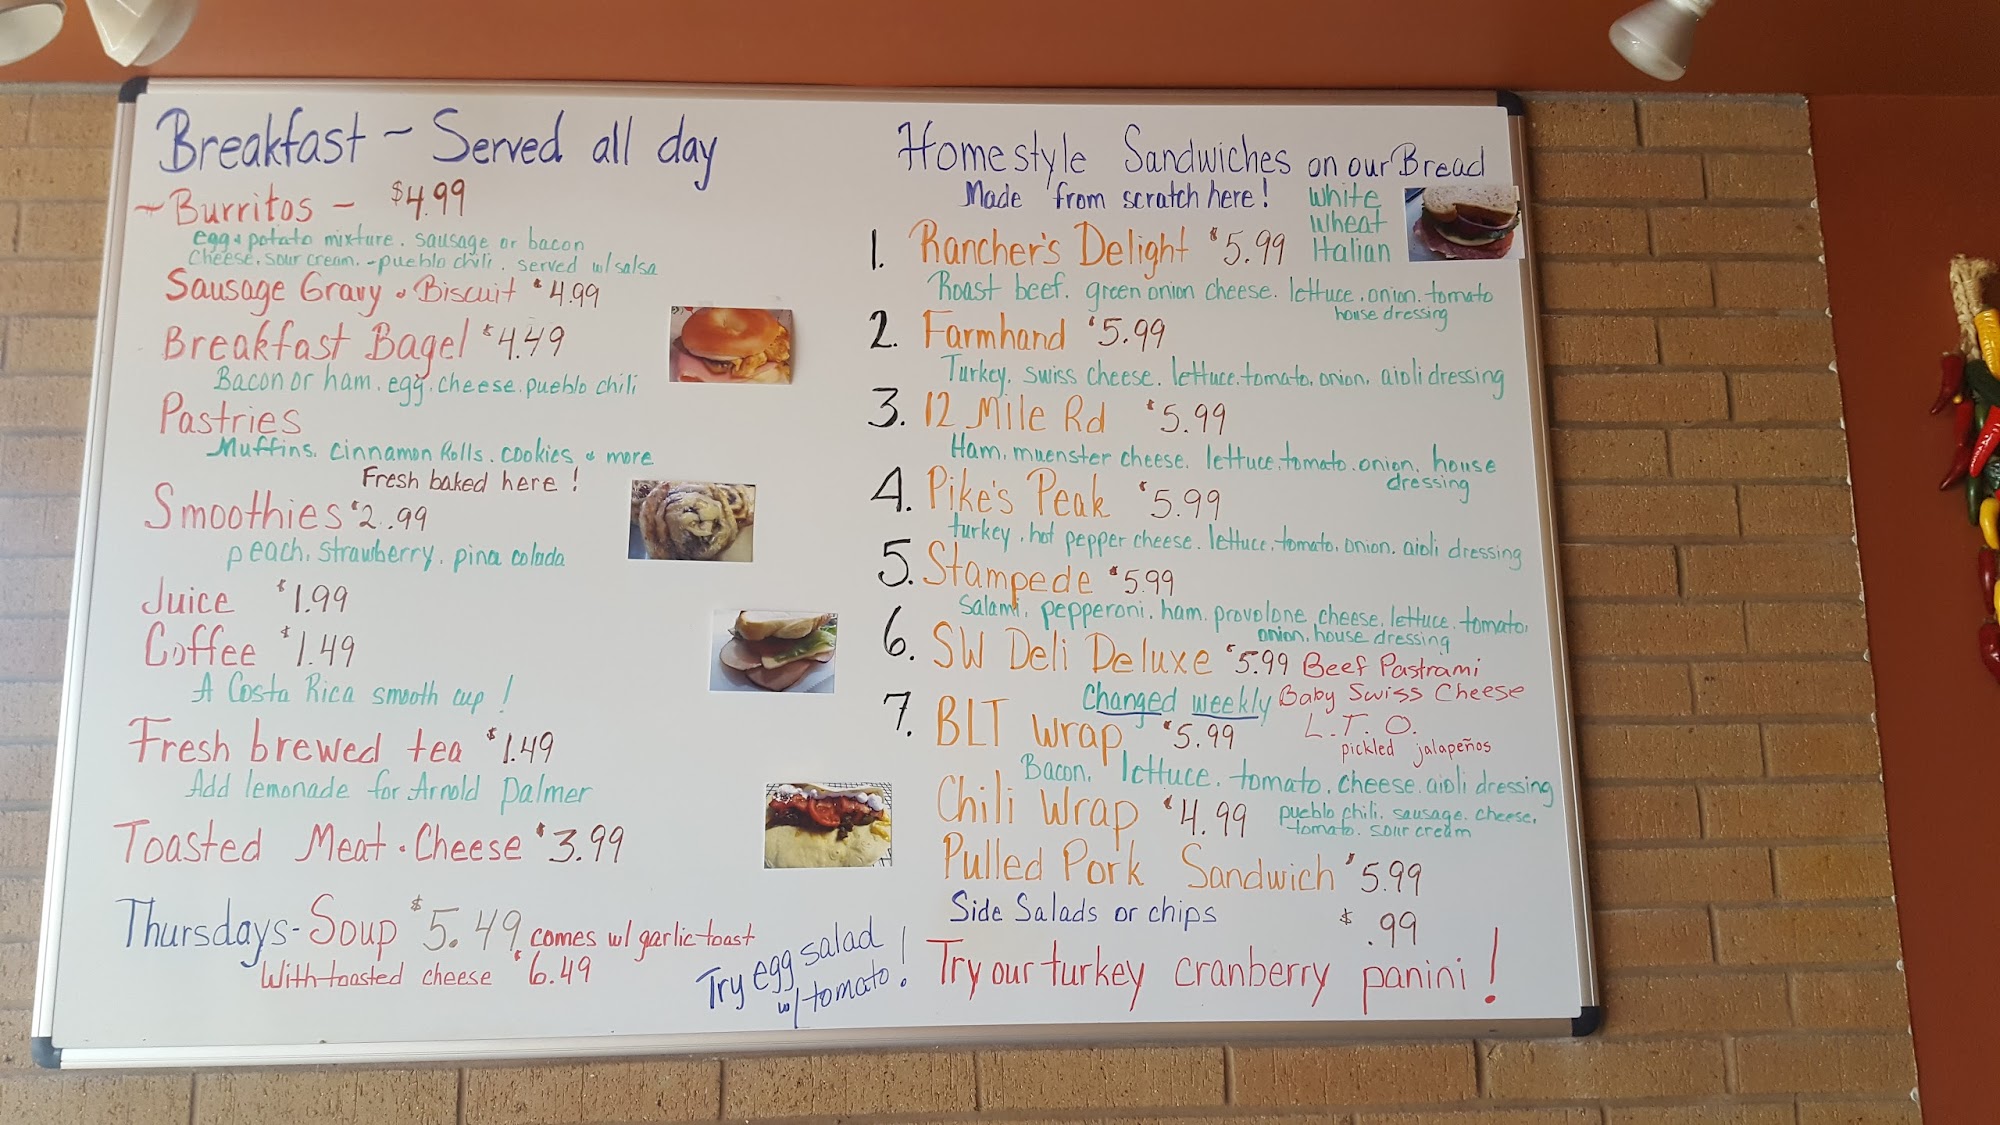 Breakfast ~ Served all day
~ Burritos - $4.99
egg & potato mixture. sausage or bacon
cheese. sour cream. - pueblo chili. served w/ salsa
Sausage Gravy & Biscuit $4.99
Breakfast Bagel $4.49
Bacon or ham. egg. cheese. pueblo chili
Pastries
Muffins. cinnamon Rolls. cookies & more
Fresh baked here!
Smoothies $2.99
peach. strawberry. pina colada
Juice $1.99
Coffee $1.49
A Costa Rica smooth cup!
Fresh brewed tea $1.49
Add lemonade for Arnold Palmer
Toasted Meat & Cheese $3.99
Thursdays - Soup $5.49 comes w/ garlic toast
With toasted cheese $6.49
Try egg salad
w/ tomato!
Homestyle Sandwiches on our Bread
Made from scratch here!
White
Wheat
Italian
1. Rancher's Delight $5.99
Roast beef. green onion cheese. lettuce. onion. tomato
house dressing
2. Farmhand $5.99
Turkey. swiss cheese. lettuce. tomato. onion. aioli dressing
3. 12 Mile Rd $5.99
Ham. muenster cheese. lettuce. tomato. onion. house
dressing
4. Pike's Peak $5.99
turkey. hot pepper cheese. lettuce. tomato. onion. aioli dressing
5. Stampede $5.99
Salami. pepperoni. ham. provolone cheese. lettuce. tomato.
onion. house dressing
6. SW Deli Deluxe $5.99 Beef Pastrami
Changed weekly Baby Swiss Cheese
L.T.O.
pickled jalapeños
7. BLT wrap $5.99
Bacon. lettuce. tomato. cheese. aioli dressing
Chili Wrap $4.99 pueblo chili. sausage. cheese.
tomato. sour cream
Pulled Pork Sandwich $5.99
Side Salads or chips $.99
Try our turkey cranberry panini!